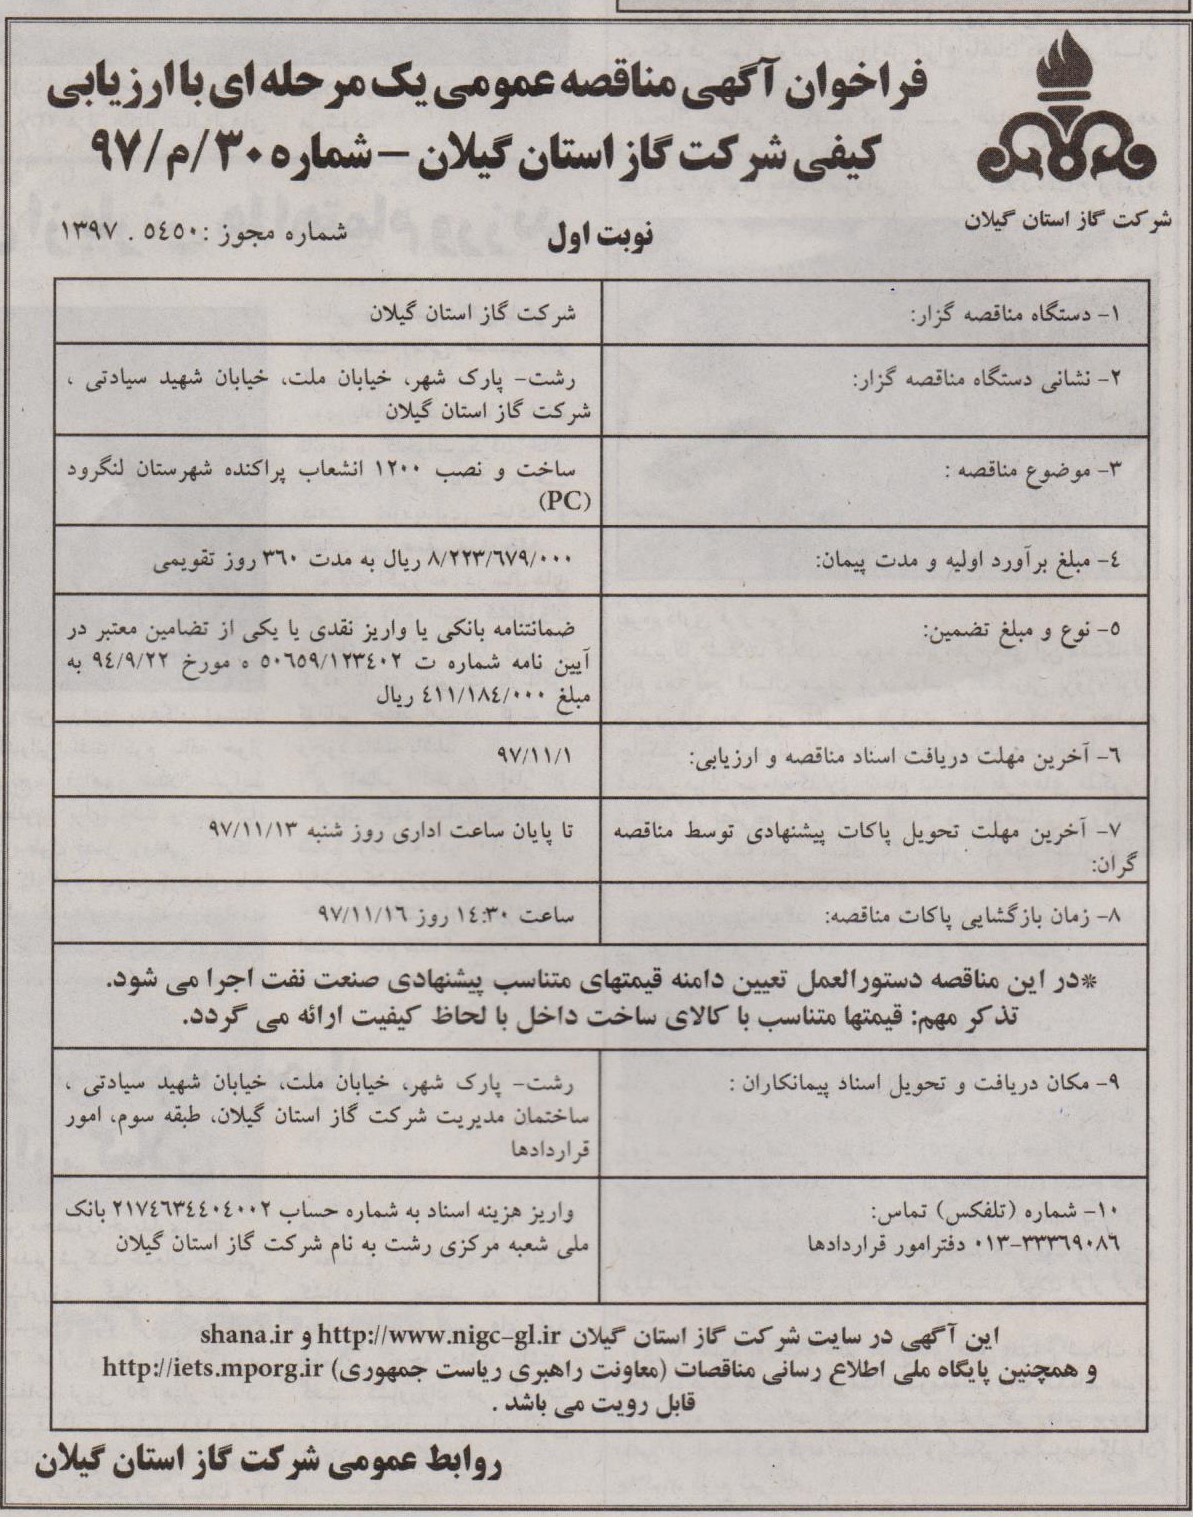 فراخوان آگهی مناقصه عمومی یک مرحله ای با ارزیابی
کیفی شرکت گاز استان گیلان – شماره ۳۰/م/۹۷
شرکت گاز استان گیلان
نوبت اول
شماره مجوز : ۵۴۵۰ . ۱۳۹۷
۱- دستگاه مناقصه گزار:
شرکت گاز استان گیلان
۲- نشانی دستگاه مناقصه گزار:
رشت- پارک شهر، خیابان ملت، خیابان شهید سیادتی ،
شرکت گاز استان گیلان
۳- موضوع مناقصه :
ساخت و نصب ۱۲۰۰ انشعاب پراکنده شهرستان لنگرود
(PC)
۴- مبلغ برآورد اولیه و مدت پیمان:
۸/۲۲۳/۶۷۹/۰۰۰ ریال به مدت ۳۶۰ روز تقویمی
۵- نوع و مبلغ تضمین:
ضمانتنامه بانکی یا واریز نقدی یا یکی از تضامین معتبر در
آیین نامه شماره ت ۵۰۶۵۹/۱۲۳۴۰۲ ه مورخ ۹۴/۹/۲۲ به
مبلغ ۴۱۱/۱۸۴/۰۰۰ ریال
۶- آخرین مهلت دریافت اسناد مناقصه و ارزیابی:
۹۷/۱۱/۱
۷- آخرین مهلت تحویل پاکات پیشنهادی توسط مناقصه
گران:
تا پایان ساعت اداری روز شنبه ۹۷/۱۱/۱۳
۸- زمان بازگشایی پاکات مناقصه:
ساعت ۱۴:۳۰ روز ۹۷/۱۱/۱۶
*در این مناقصه دستورالعمل تعیین دامنه قیمتهای متناسب پیشنهادی صنعت نفت اجرا می شود.
تذکر مهم: قیمتها متناسب با کالای ساخت داخل با لحاظ کیفیت ارائه می گردد.
۹- مکان دریافت و تحویل اسناد پیمانکاران :
رشت- پارک شهر، خیابان ملت، خیابان شهید سیادتی ،
ساختمان مدیریت شرکت گاز استان گیلان، طبقه سوم، امور
قراردادها
۱۰- شماره (تلفکس) تماس:
۰۱۳-۳۳۳۶۹۰۸۶ دفترامور قراردادها
واریز هزینه اسناد به شماره حساب ۲۱۷۴۶۳۴۴۰۴۰۰۲ بانک
ملی شعبه مرکزی رشت به نام شرکت گاز استان گیلان
این آگهی در سایت شرکت گاز استان گیلان http://www.nigc-gl.ir و shana.ir
و همچنین پایگاه ملی اطلاع رسانی مناقصات (معاونت راهبری ریاست جمهوری) http://iets.mporg.ir
قابل رویت می باشد .
روابط عمومی شرکت گاز استان گیلان